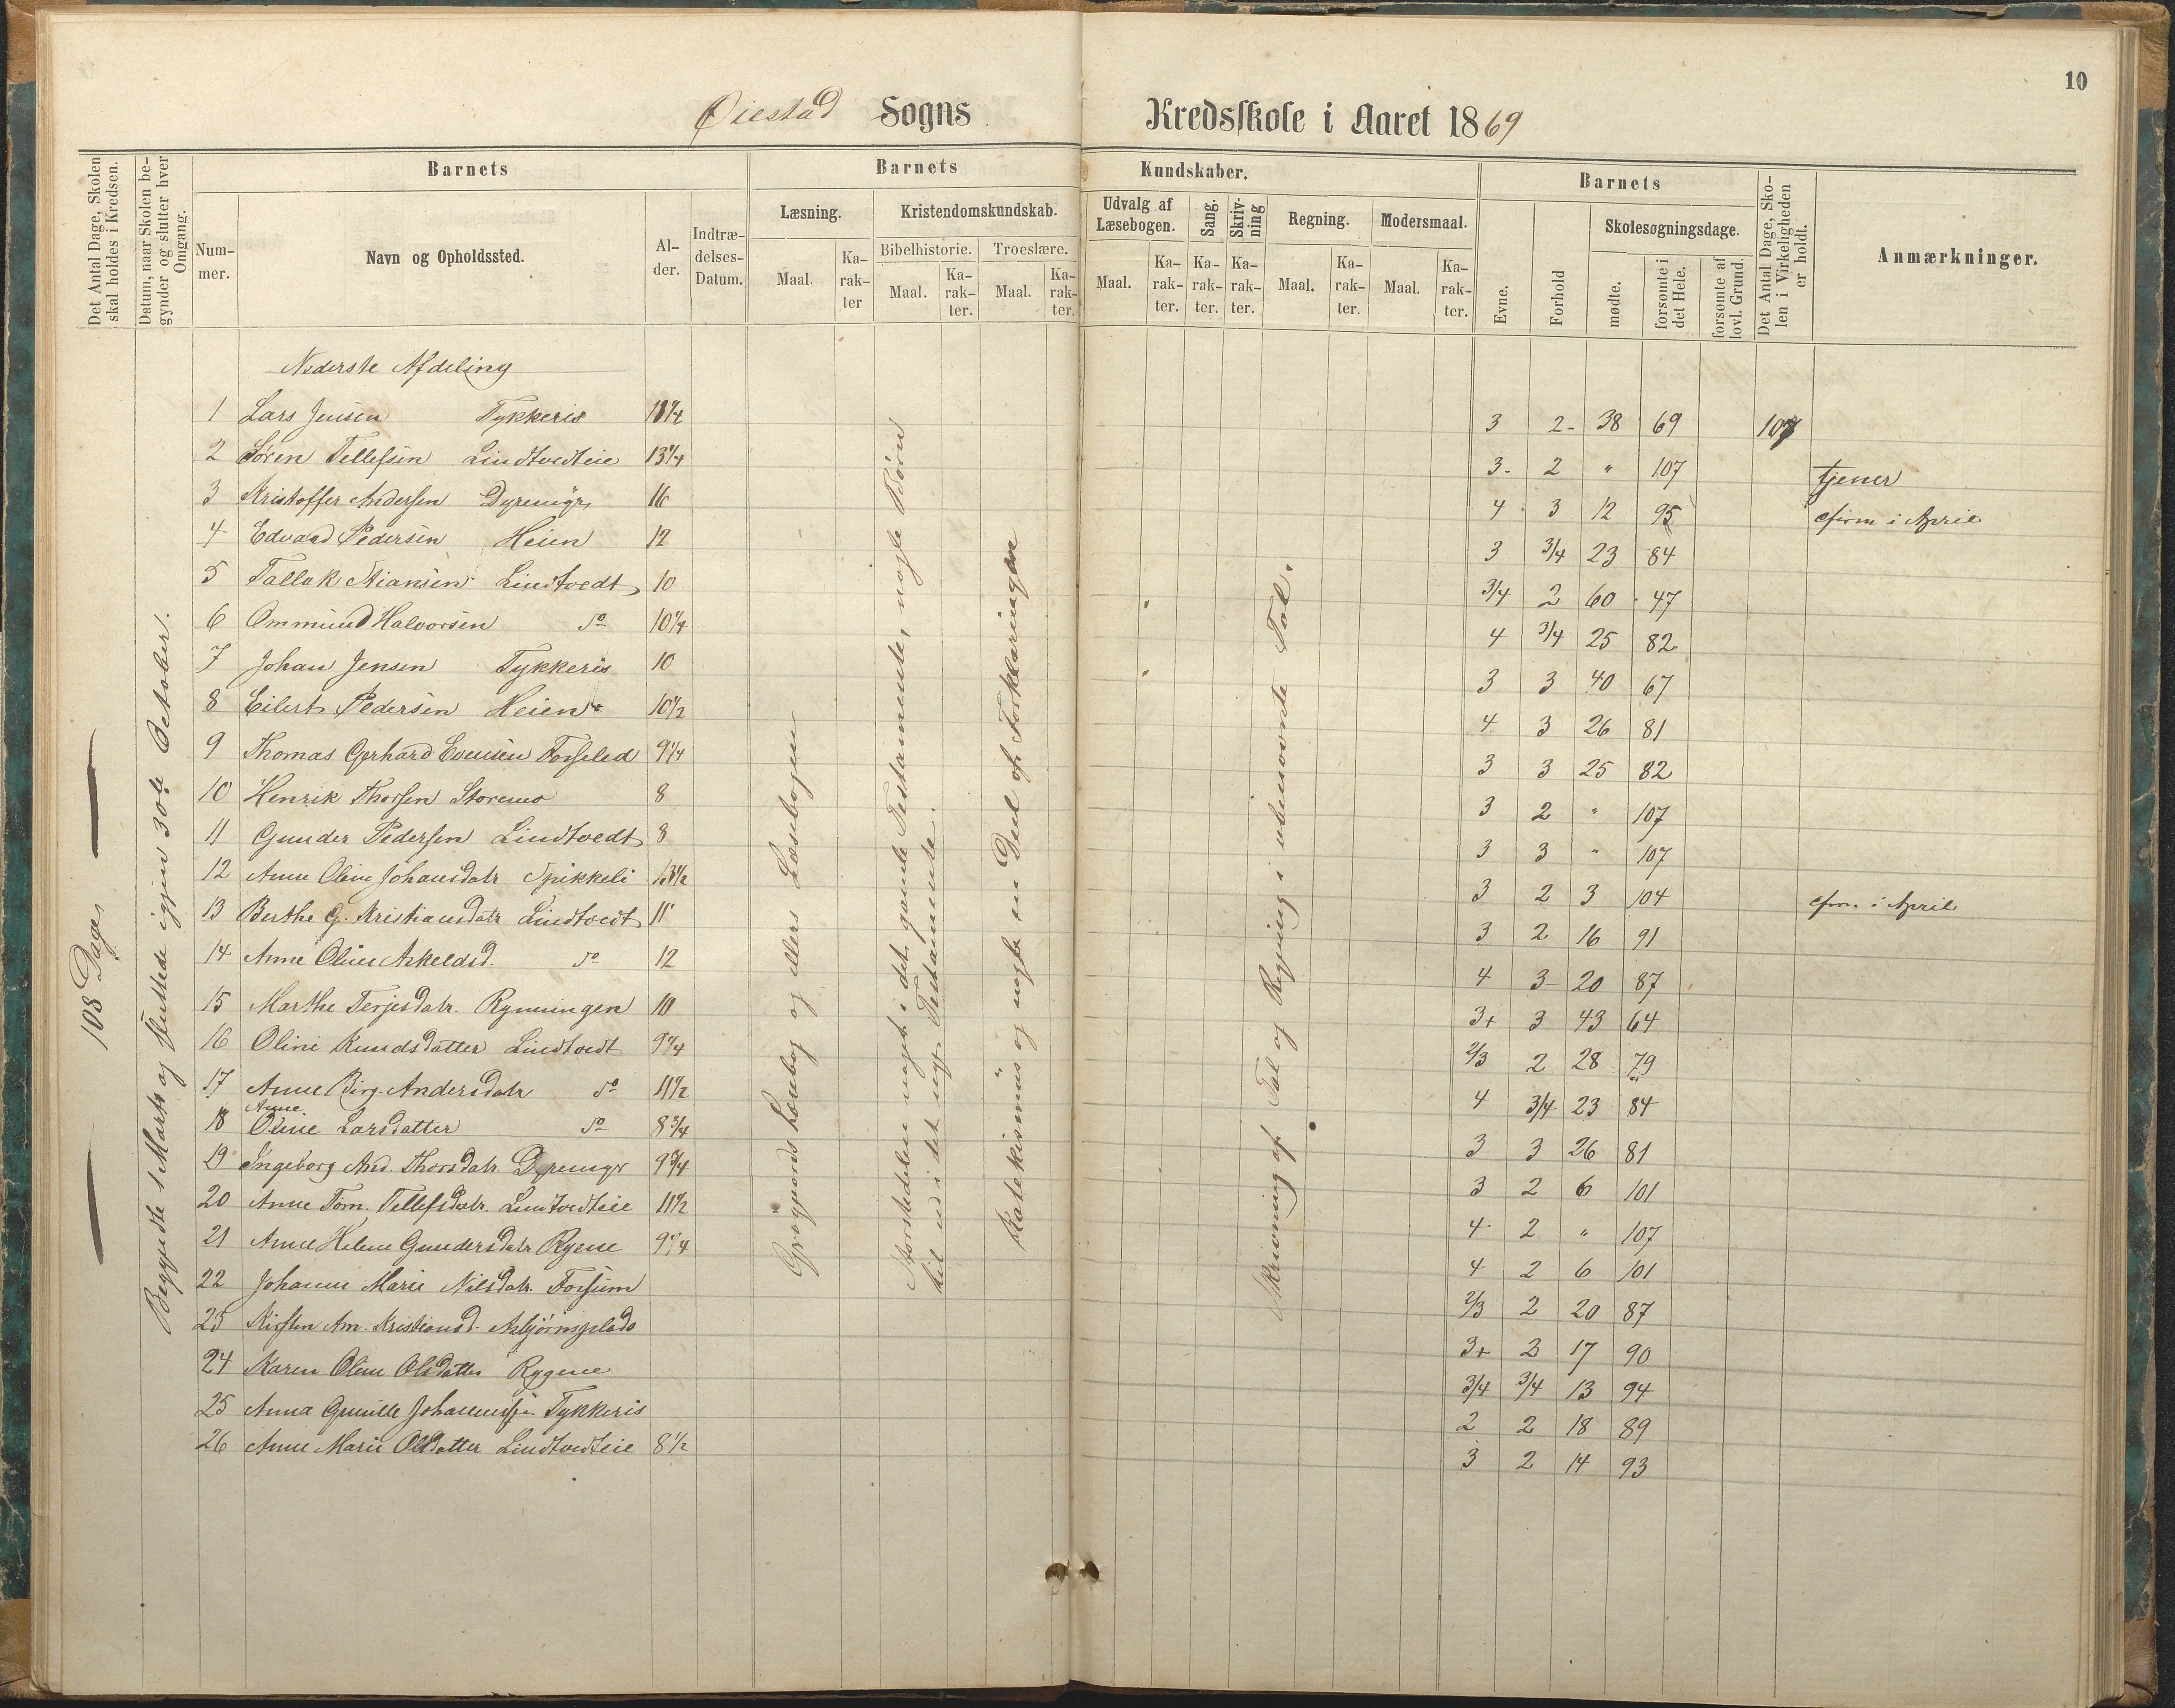 10
Øiestad Sogns Kredsskole i Aaret 1869
Det Antal Dage, Skolen skal holdes i Kredsen.
Datum, naar Skolen begynder og slutter hver Omgang.
Barnets
Nummer.
Navn og Opholdssted.
Alder.
Indtrædelses-Datum.
Barnets Kundskaber.
Læsning.
Maal.
Karakter
Kristendomskundskab.
Bibelhistorie.
Maal.
Karakter.
Troeslære.
Maal.
Karakter.
Udvalg af Læsebogen.
Maal.
Karakter.
Sang.
Karakter.
Skrivning
Karakter.
Regning.
Maal.
Karakter.
Modersmaal.
Maal.
Karakter.
Barnets
Evne.
Forhold
Skolesøgningsdage.
mødte.
forsømte i det Hele.
forsømte af lovl. Grund.
Det Antal Dage, Skolen i Virkeligheden er holdt.
Anmærkninger.
108 Dage
Begyndte 1 Marts og sluttede igjen 30te October.
Nederste Afdeling
1 Lars Jensen Tykkeris 3 2- 38 69 107
2 Søren Tellefsen Lindtvedteie 13 1/4 3- 2 " 107 tjener
3 Kristoffer Andersen Dyremyr 16 4 3 12 95 cfirm i April
4 Edvard Pedersen Heien 12 3 3/4 23 84
5 Tallak Stiansen Lindtvedt 10 3/4 2 60 47
6 Ommund Halvorsen do 10 1/4 4 3/4 25 82
7 Johan Jensen Tykkeris 10 3 3 40 67
8 Eilert Pedersen Heien 10 1/2 4 3 26 81
9 Thomas Gerhard Evensen 9 1/4 3 3 25 82
10 Henrik Thorsen Storemo 8 3 2 " 107
11 Gunder Pedersen Lindtvedt 8 3 3 " 107
12 Anne Oline Johansdatr Spikkeli 13 1/2 3 2 3 104 cfirm i April
13 Berthe G. Kristiansdatr Lindtvedt 11 3 2 16 91
14 Anne Oline Askeldsd. do 12 4 3 20 87
15 Marthe Terjesdatr. Rynningen 10 3+ 3 43 64
16 Oline Knudsdatter Lindtvedt 9 1/4 2/3 2 28 79
17 Anne Birg. Andersdatr do 11 1/2 4 3/4 23 84
18 Anne Oline Larsdatter do 8 3/4 3 3 26 81
19 Ingeborg And. Thorsdatr. Dyremyr 9 3/4 3 2 6 101
20 Anne Tom. Tellefsdatr. Lindtvedteie 11 1/2 4 2 " 107
21 Anne Helene Gundersdatr Rygene 9 1/4 4 2 6 101
22 Johanne Marie Nilsdatr. Fossum 2/3 2 20 87
23 Kirsten Am. Kristiansd. Asbjørnsplads 3+ 2 17 90
24 Karen Oline Olsdatter Rygene 3/4 3/4 13 94
25 Anna Gunille Tykkeris 2 2 18 89
26 Anne Marie Olsdatter Lindtvedteie 8 1/2 3 2 14 93
Læsebog og Læsebogen
Storstedelen noget i det gamle Testamente, nogle Børn
til ud i det nye Testamente.
Katekismus og nogle en Deel af Forklaringen
Skrivning af Tal og Regning i ubenævnte Tal.